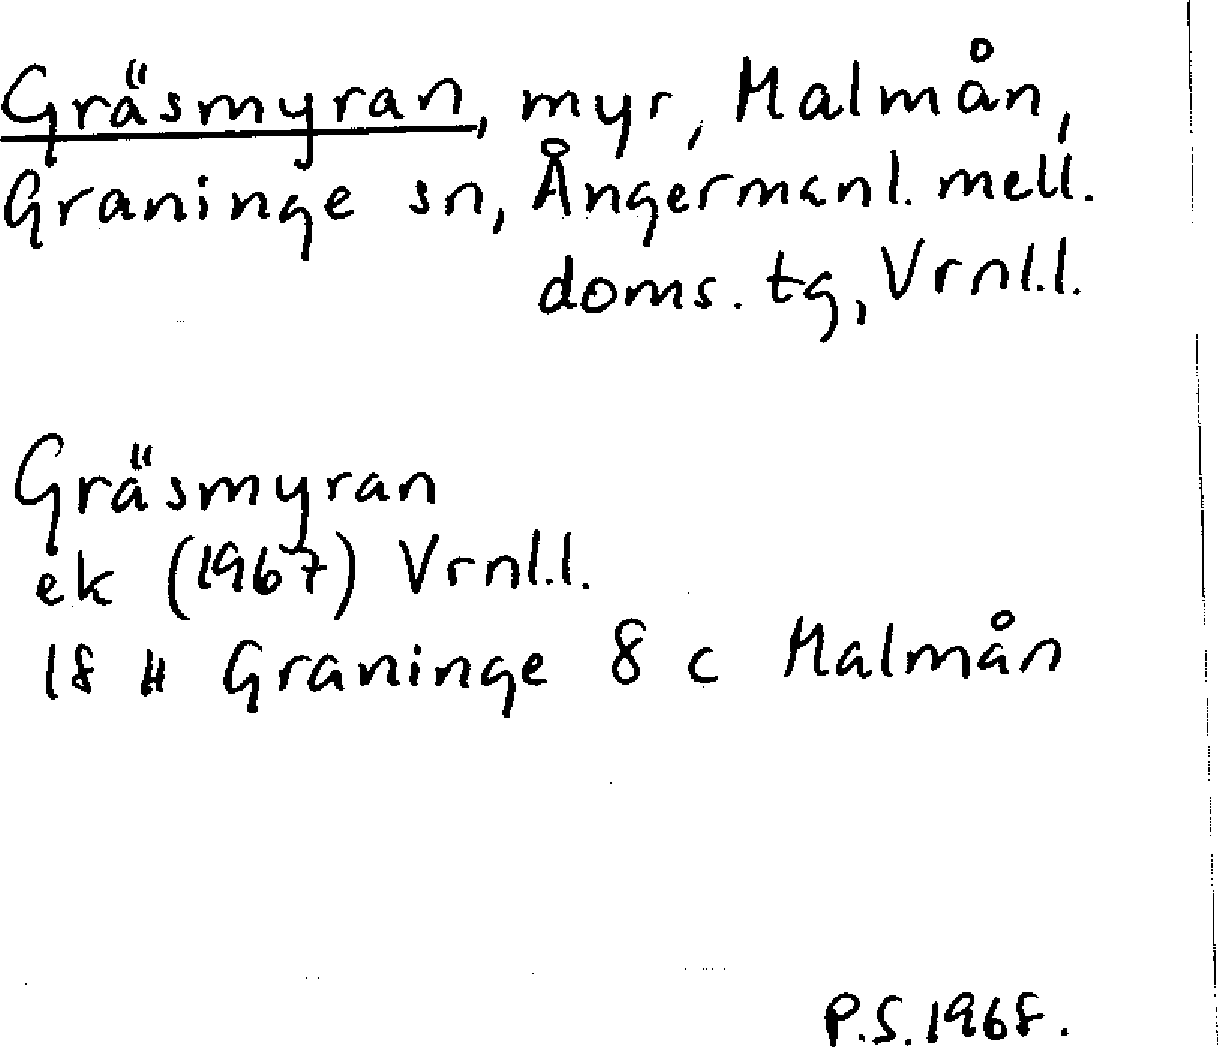 Gräsmyran, myr, Malmån,
Graninge sn, Ångermanl. mell.
doms. tg, Vrnl.l.
Gräsmyran
ek (1967) Vrnl.l.
18 H Graninge 8 c Malmån
P.S. 1968.